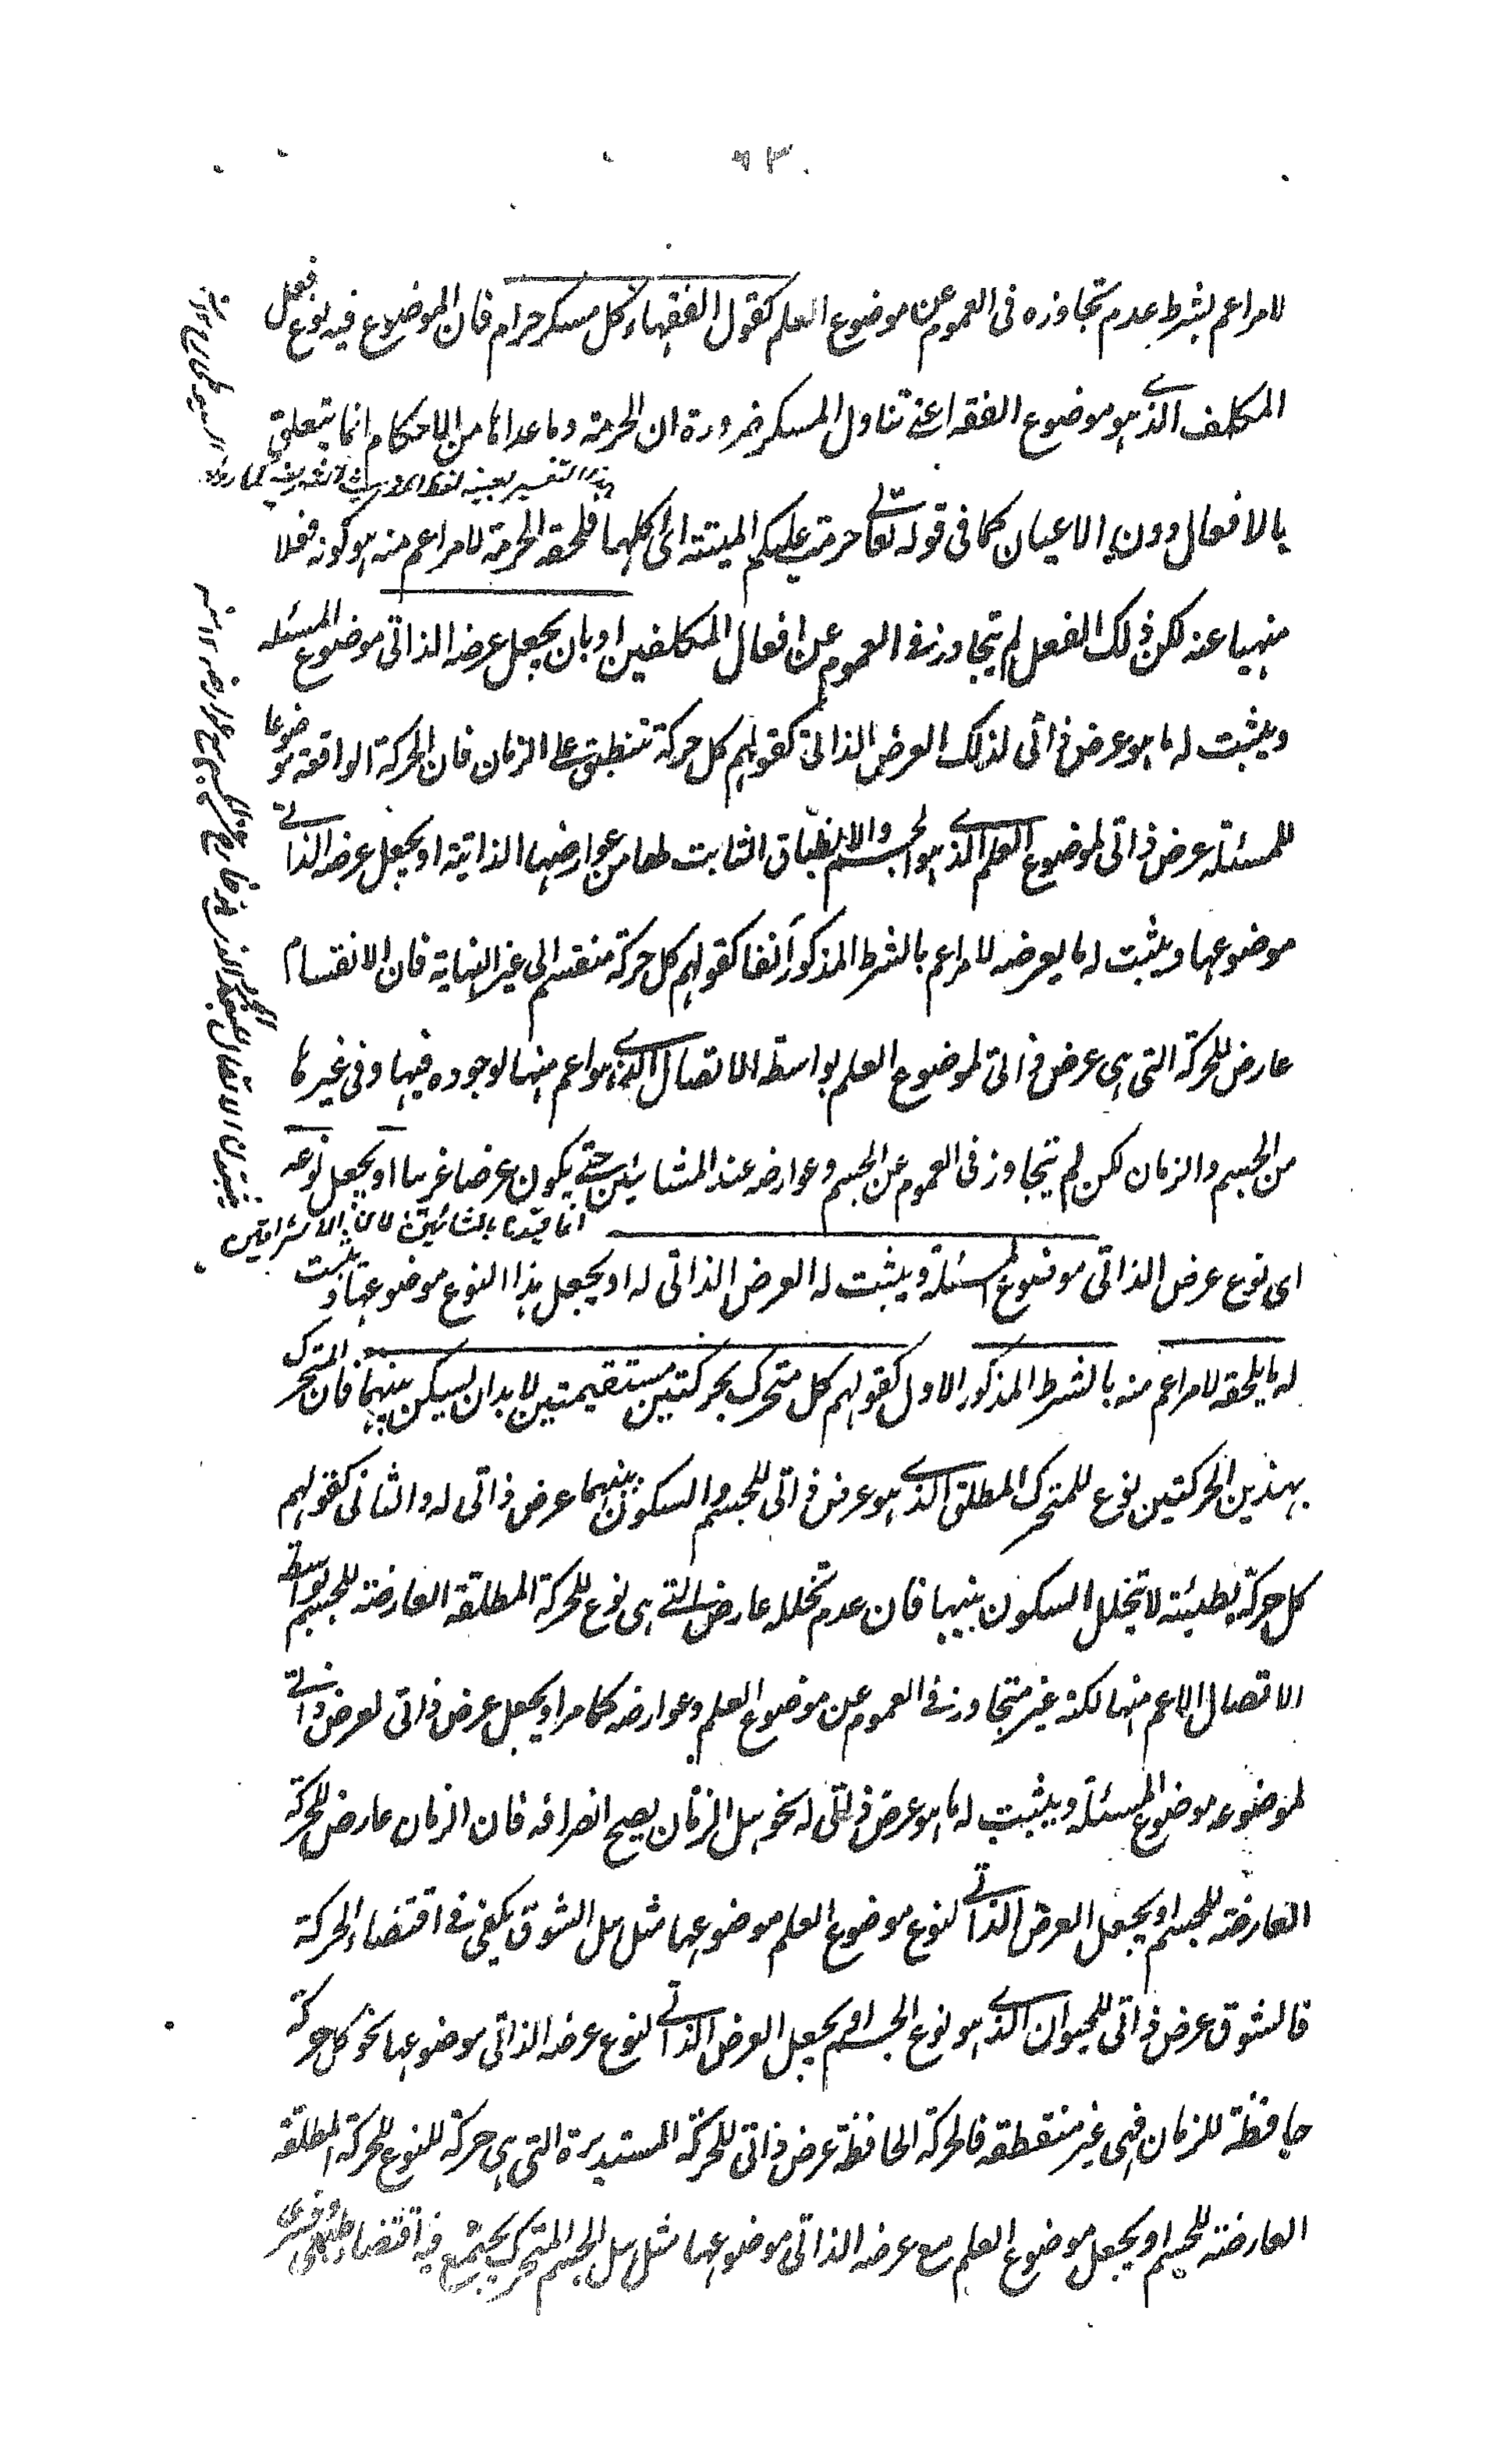 ٦٣
لامر اعم بشرط عدم تجاوزه فى العموم عن موضوع العلم كقول الفقهاء كل مسكر حرام فان الموضوع فيه نوع فعل
المكلف الذي هو موضوع الفقه اعنى تناول المسكر ضرورة ان الحرمة وما عداها من الاحكام انما يتعلق
بالافعال دون الاعيان كما فى قوله تعالى حرمت عليكم الميتة اى اكلها فلحقه الحرمة لامر اعم منه هو كونه فعلا
منهيا عنه لكن ذلك الفعل لم يتجاوز فى العموم عن افعال المكلفين او بان يجعل عرضه الذاتى موضوع المسئلة
ويثبت له ما هو عرض ذاتى لذلك العرض الذاتى كقولهم كل حركة تنطبق على الزمان فان الحركة الواقعة موضوعا
للمسئلة عرض ذاتى لموضوع العلم الذي هو الجسم والانطباق الثابت لها من عوارضها الذاتية او يجعل عرضه الذاتي
موضوعها ويثبت له ما يعرضه لامر اعم بالشرط المذكور آنفا كقولهم كل حركة منقسم الى غير النهاية فان الانقسام
عارض للحركة التى هى عرض ذاتى لموضوع العلم بواسطة الاتصال الذي هو اعم منها لوجوده فيها وفى غيرها
من الجسم والزمان لكن لم يتجاوز فى العموم عن الجسم وعوارضه عند المشائين حتى يكون عرضا غريبا او يجعل نوعه
انما قيده بالمشائين لان الاشراقيين
اى نوع عرض الذاتى موضوع المسئلة ويثبت له العرض الذاتى له او يجعل هذا النوع موضوعها ويثبت
له ما يلحقه لامر اعم منه بالشرط المذكور الاول كقولهم كل متحرك بحركتين مستقيمتين لا بد ان يسكن بينهما فان المتحرك
بهذين الحركتين نوع للمتحرك المطلق الذي هو عرض ذاتى للجسم والسكون بينهما عرض ذاتى له والثانى كقولهم
كل حركة بطيئة لا تخلل السكون بينها فان عدم تخلله عارض التى هى نوع للحركة المطلقة العارضة للجسم بواسطة
الاتصال الاعم منها لكنه غير متجاوز فى العموم عن موضوع العلم وعوارضه كما مر او يجعل عرض ذاتى لعرض ذاتي
لموضوعه موضوع المسئلة ويثبت له ما هو عرض ذاتى له نحو هل الزمان يصح انصرافه فان الزمان عارض للحركة
العارضة للجسم او يجعل العرض الذاتي لنوع موضوع العلم موضوعها مثل هل الشوق يكفى فى اقتضاء الحركة
فالشوق عرض ذاتى للحيوان الذي هو نوع الجسم او يجعل العرض الذاتي لنوع عرضه الذاتى موضوعها نحو كل حركة
حافظة للزمان فهى غير منقطعة فالحركة الحافظة عرض ذاتى للحركة المستديرة التى هى حركة للنوع للحركة المطلقة
العارضة للجسم او يجعل موضوع العلم مع عرضه الذاتى موضوعها مثل هل الجسم المتحرك يجتمع فيه اقتضاء